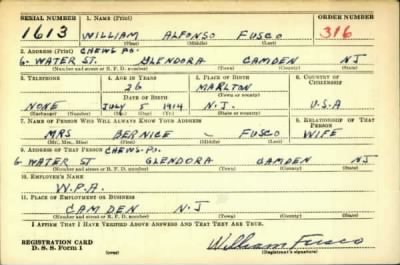 SERIAL NUMBER 1. NAME (Print) ORDER NUMBER
1613 WILLIAM ALFONSO FUSCO 316
(First) (Middle) (Last)
2. ADDRESS (Print) CHEWS PO.
6. WATER ST. GLENDORA CAMDEN NJ
(Number and street or R. F. D. number) (Town) (County) (State)
3. TELEPHONE 4. AGE IN YEARS 5. PLACE OF BIRTH 6. COUNTRY OF CITIZENSHIP
26 MARLTON
DATE OF BIRTH (Town or county)
NONE JULY 5 1914 N.J. U.S.A
(Exchange) (Number) (Mo.) (Day) (Yr.) (State or country)
7. NAME OF PERSON WHO WILL ALWAYS KNOW YOUR ADDRESS 8. RELATIONSHIP OF THAT PERSON
MRS BERNICE - FUSCO WIFE
(Mr., Mrs., Miss) (First) (Middle) (Last)
9. ADDRESS OF THAT PERSON CHEWS-PO.
6 WATER ST GLENDORA CAMDEN NJ
(Number and street or R. F. D. number) (Town) (County) (State)
10. EMPLOYER'S NAME
W.P.A.
11. PLACE OF EMPLOYMENT OR BUSINESS
CAMDEN N.J
(Number and street or R. F. D. number) (Town) (County) (State)
I AFFIRM THAT I HAVE VERIFIED ABOVE ANSWERS AND THAT THEY ARE TRUE.
REGISTRATION CARD William Fusco
D. S. S. Form 1 (over) (Registrant's signature)